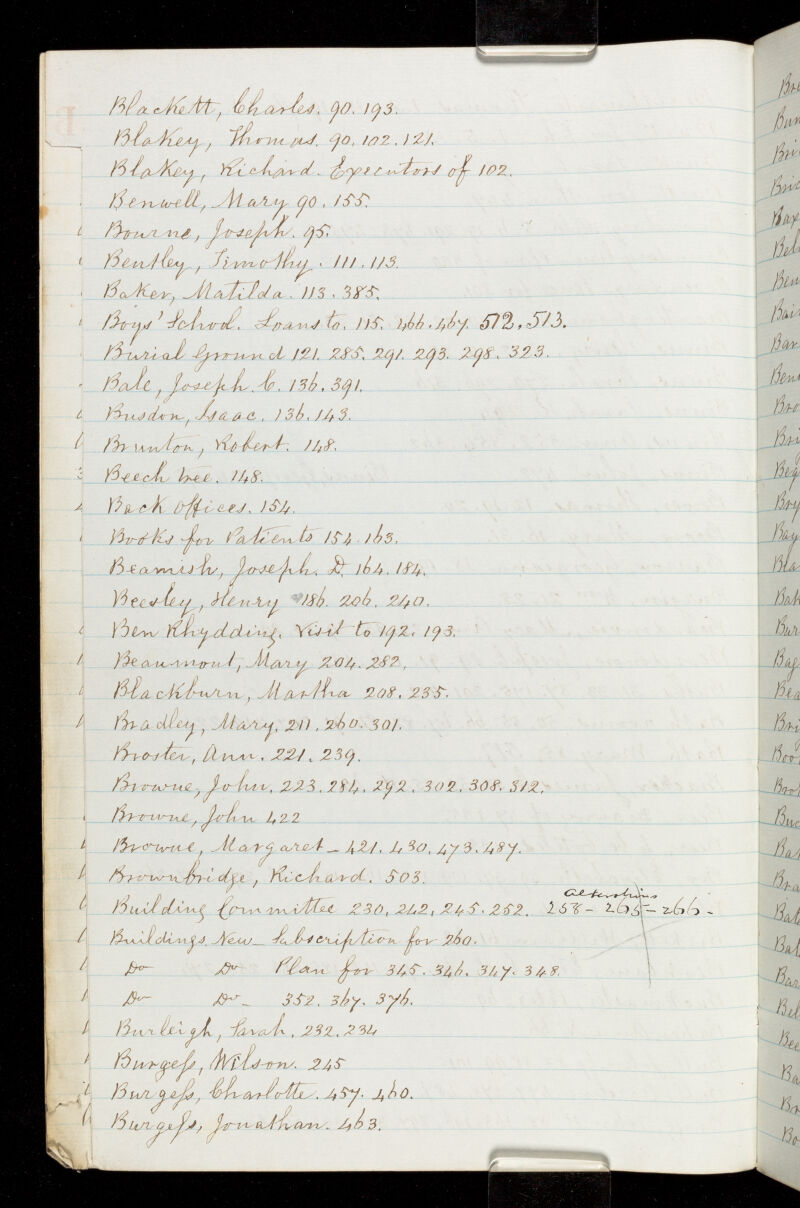 Blackett, Charles. 90. 193.
Blakey, Thomas. 90. 102. 121.
Blakey, Richard. Executors of 102.
Benwell, Mary 90. 155.
Bourne, Joseph. 95.
Bentley, Timothy. 111. 113.
Baker, Matilda. 113. 385.
Boys' School. Loans to. 115. 466. 467. 512. 513.
Burial Ground 121. 285. 291. 293. 298. 323.
Bale, Joseph. C. 136. 391.
Busdon, Isaac. 136. 143.
Brunton, Robert. 148.
Beech tree. 148.
Back Offices. 154.
Books for Patients 154. 163.
Beamish, Joseph. D. 164. 184.
Beesley, Henry 186. 206. 240.
Ben Rhydding. Visit to 192. 193.
Beaumont, Mary 204. 282.
Blackburn, Martha 208. 235.
Bradley, Mary. 211. 260. 301.
Broster, Ann. 221. 239.
Browne, John. 223. 284. 292. 302. 308. 312.
Browne, John 422
Browne, Margaret - 421. 430. 473. 487.
Brownbridge, Richard. 503.
Building Committee 230. 242. 245. 252. 258 - 265 - 266 -
Buildings. New - Subscription for 260.
Do Do Plan for 345. 346. 347. 348.
Do Do - 352. 367. 376.
Burleigh, Sarah. 232. 234
Burgess, Wilson. 245
Burgess, Charlotte. 457. 460.
Burgess, Jonathan. 463.